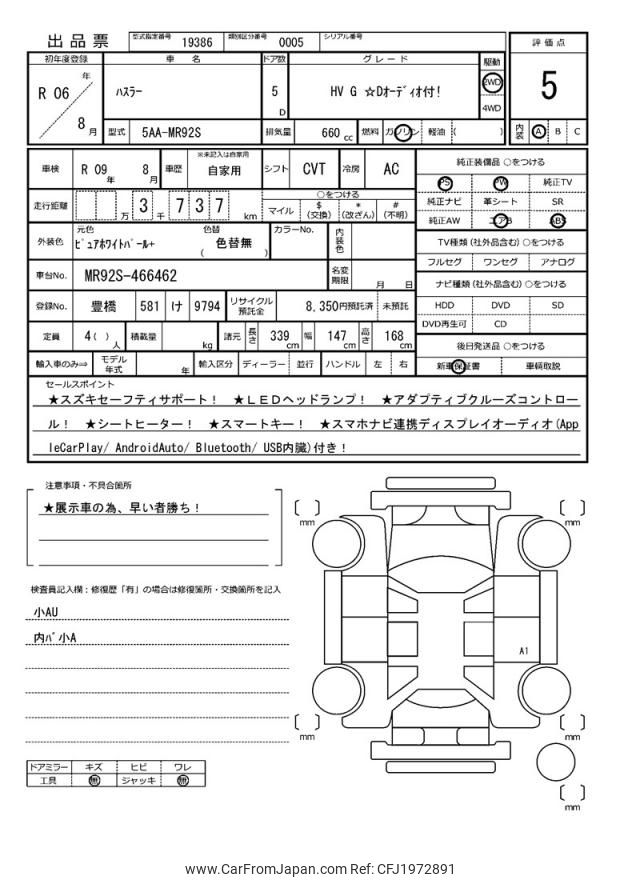 出品票 型式指定番号 19386 類別区分番号 0005 シリアル番号
評価点
5
初年度登録 車名 ドア数 グレード 駆動
R 06 年 8 月
ハスラー 5 D HV G ☆Dオーディオ付! 2WD 4WD
型式 5AA-MR92S 排気量 660 cc 燃料 ガソリン 軽油 ( )
内装 A B C
車検 R 09 年 8 月 車歴 ※未記入は自家用 自家用 シフト CVT 冷房 AC
走行距離 万 3 千 7 3 7 km
○をつける
マイル $ (交換) * (改ざん) # (不明)
外装色 元色 ピュアホワイトパール+ 色替 ( 色替無 ) カラーNo. 内装色
車台No. MR92S-466462 名変期限 月 日
登録No. 豊橋 581 け 9794 リサイクル預託金 8,350円預託済 未預託
定員 4( ) 人 積載量 kg 諸元 長さ 339 cm 幅 147 cm 高さ 168 cm
輸入車のみ⇒ モデル年式 年 輸入区分 ディーラー 並行 ハンドル 左 右
純正装備品 ○をつける
PS PW 純正TV
純正ナビ 革シート SR
純正AW エアB ABS
TV種類 (社外品含む) ○をつける
フルセグ ワンセグ アナログ
ナビ種類 (社外品含む) ○をつける
HDD DVD SD
DVD再生可 CD
後日発送品 ○をつける
新車保証書 車輌取説
セールスポイント
★スズキセーフティサポート! ★LEDヘッドランプ! ★アダプティブクルーズコントロー
ル! ★シートヒーター! ★スマートキー! ★スマホナビ連携ディスプレイオーディオ(App
leCarPlay/ AndroidAuto/ Bluetooth/ USB内臓)付き!
注意事項・不具合箇所
★展示車の為、早い者勝ち!
検査員記入欄:修復歴「有」の場合は修復箇所・交換箇所を記入
小AU
内バ小A
ドアミラー キズ ヒビ ワレ
工具 無 ジャッキ 無
mm
mm
A1
mm
mm
mm
www.CarFromJapan.com Ref: CFJ1972891